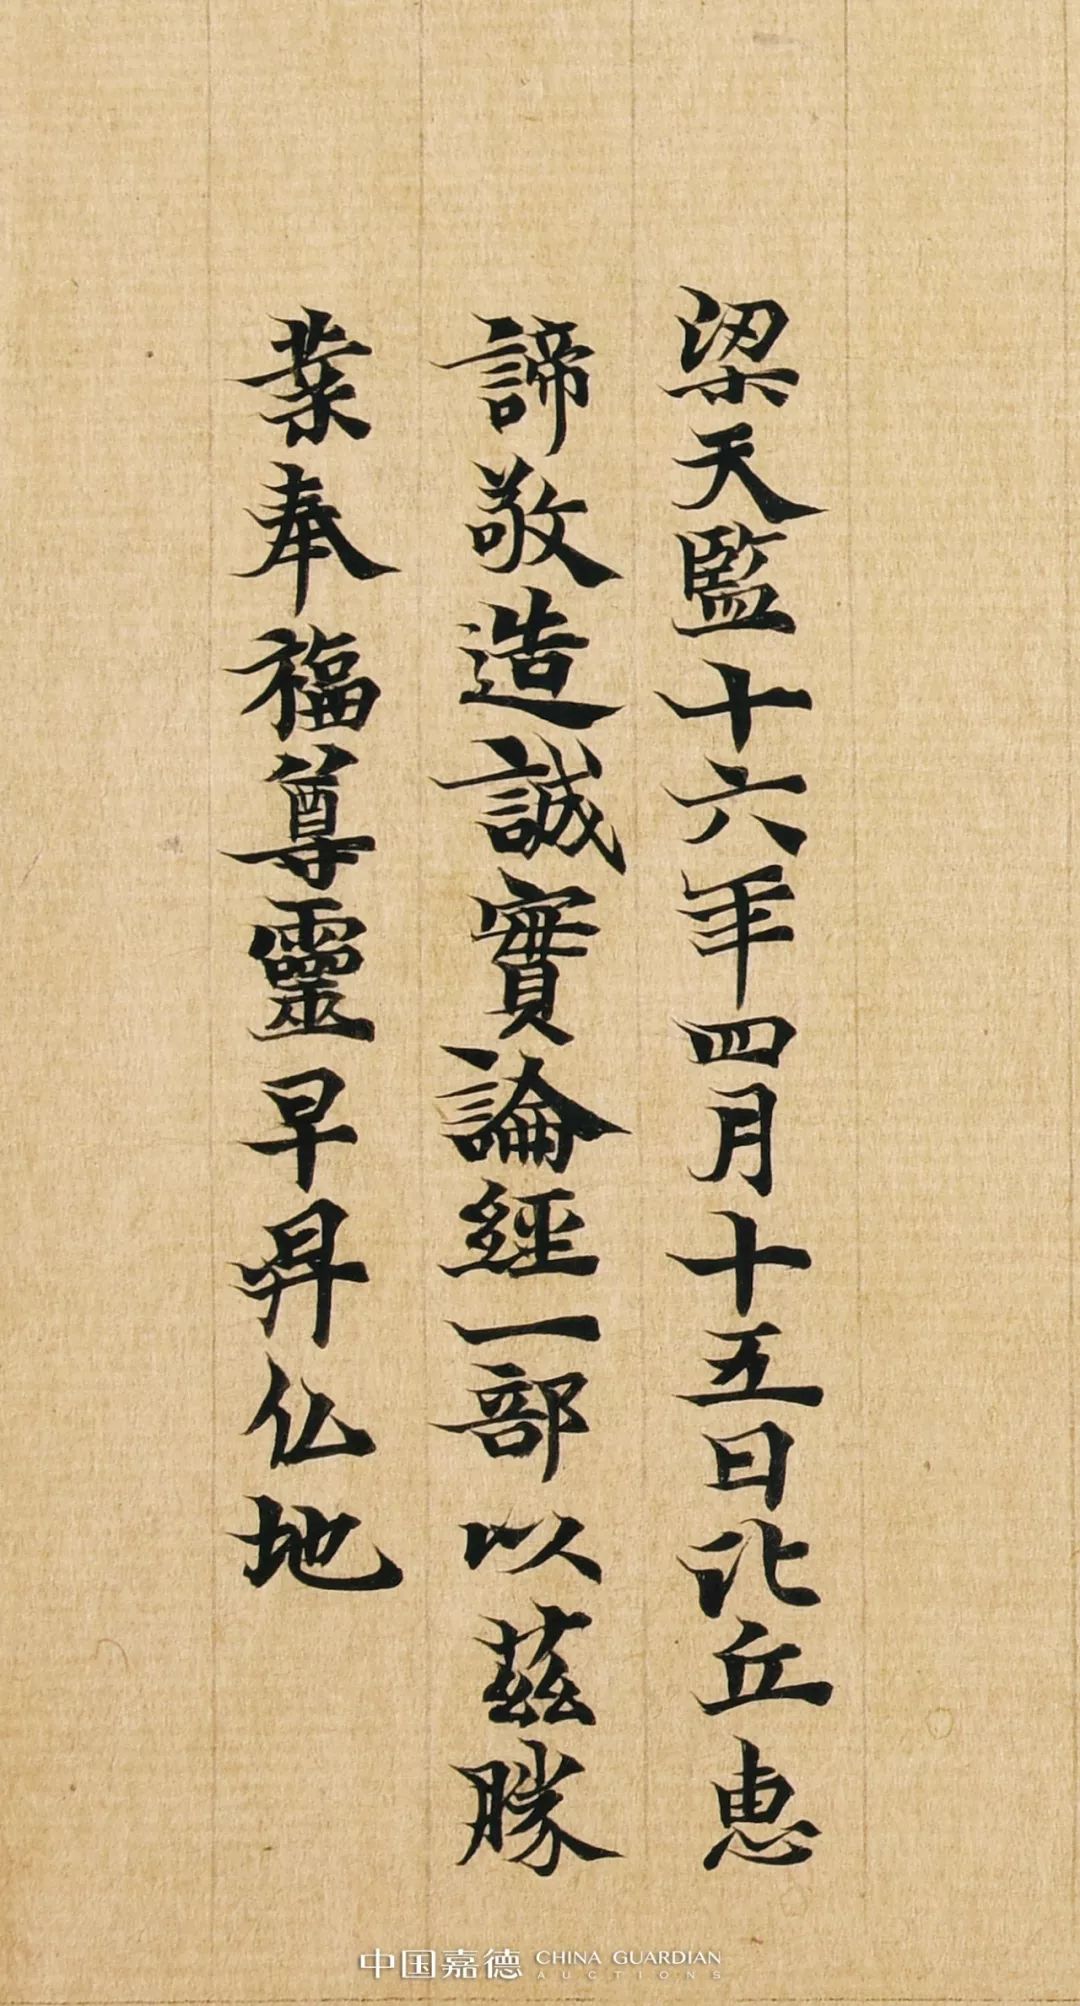 梁天監十六年四月十五日比丘惠
諦敬造誠實論經一部以茲勝
業奉福尊靈早昇仏地
中国嘉德 CHINA GUARDIAN
AUCTIONS